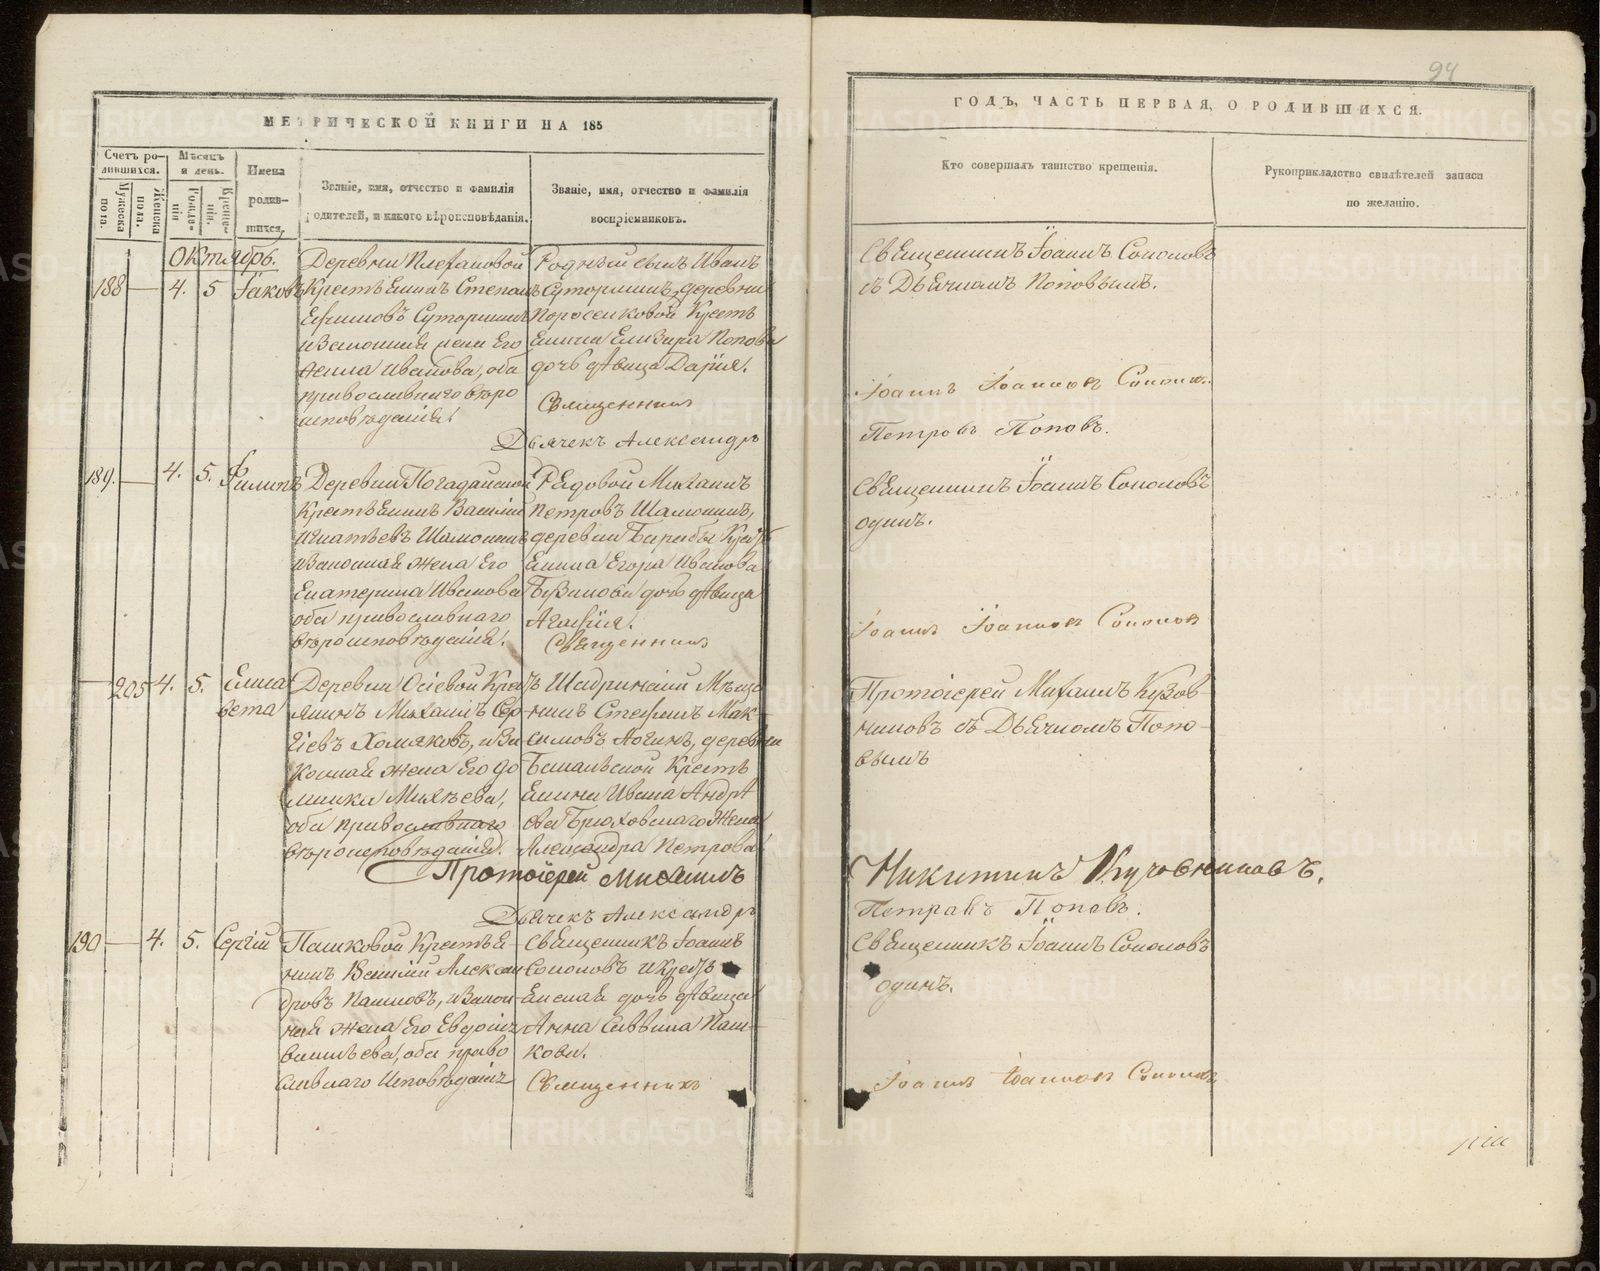 94
МЕТРИЧЕСКОЙ КНИГИ НА 185
ГОДЪ, ЧАСТЬ ПЕРВАЯ, О РОДИВШИХСЯ.
Счетъ родившихся.
Мужеска пола.
Женска пола.
Мѣсяцъ и день.
Рожденія
Крещенія.
Имена родившихся,
Званіе, имя, отчество и фамилія
родителей, и какого вѣроисповѣданія.
Званіе, имя, отчество и фамилія
воспріемниковъ.
Кто совершалъ таинство крещенія.
Рукоприкладство свидѣтелей записи
по желанію.
Октябрь.
188 4. 5 Іаковъ
Деревни Плехановой
Крестьянинъ Степанъ
Ефимовъ Суторминъ
и законная жена его
Иванова, оба
православнаго вѣро
исповѣданія.
Родный сынъ Иванъ
Суторминъ, деревни
Поросенковой Кресть
янина Елизара Попова
дочь дѣвица Дарія.
Священникъ
Дьячекъ Александръ
Священникъ Іоаннъ Соколовъ
съ Дьячкомъ Поповымъ.
Іоаннъ Іоанновъ Соколовъ
Петровъ Поповъ.
189. 4. 5. Филипъ
Деревни Погадайской
Крестьянинъ Василій
Игнатьевъ
и законная жена его
Екатерина Иванова
оба православнаго
вѣроисповѣданія.
Рядовой Михаилъ
Петровъ
деревни Барабы Кресть
янина Егора Иванова
дочь дѣвица
Агафія.
Священникъ
Священникъ Іоаннъ Соколовъ
одинъ.
Іоаннъ Іоанновъ Соколовъ
205 4. 5. Елиса
вета
Деревни Осіевой Кре
янинъ Михаилъ Сер
гіевъ Хомяковъ, и за
конная жена его До
мника Михѣева,
оба православнаго
вѣроисповѣданія.
Шадринскій Мѣща
нинъ Стефанъ Мак
симовъ деревни
Кресть
янина Ивана Андре
ева Брюховскаго жена
Александра Петрова
Протоіерей Михаилъ
Дьячекъ Александръ
Протоіерей Михаилъ Кузов
никовъ съ Дьячкомъ Попо
вымъ
Никитинъ Кузовниковъ.
Петровъ Поповъ.
190 4. 5. Сергій
Пашковой Крестья
нинъ Василій Алексан
дровъ Пашковъ, и закон
ная жена его Евдокія
Васильева, оба право
славнаго исповѣданія
Священникъ Іоаннъ
Соколовъ и Кресть
янская дочь дѣвица
Анна Саввина Паш
кова.
Священникъ
Священникъ Іоаннъ Соколовъ
одинъ.
Іоаннъ Іоанновъ Соколовъ
METRIKI.GASO-URAL.RU